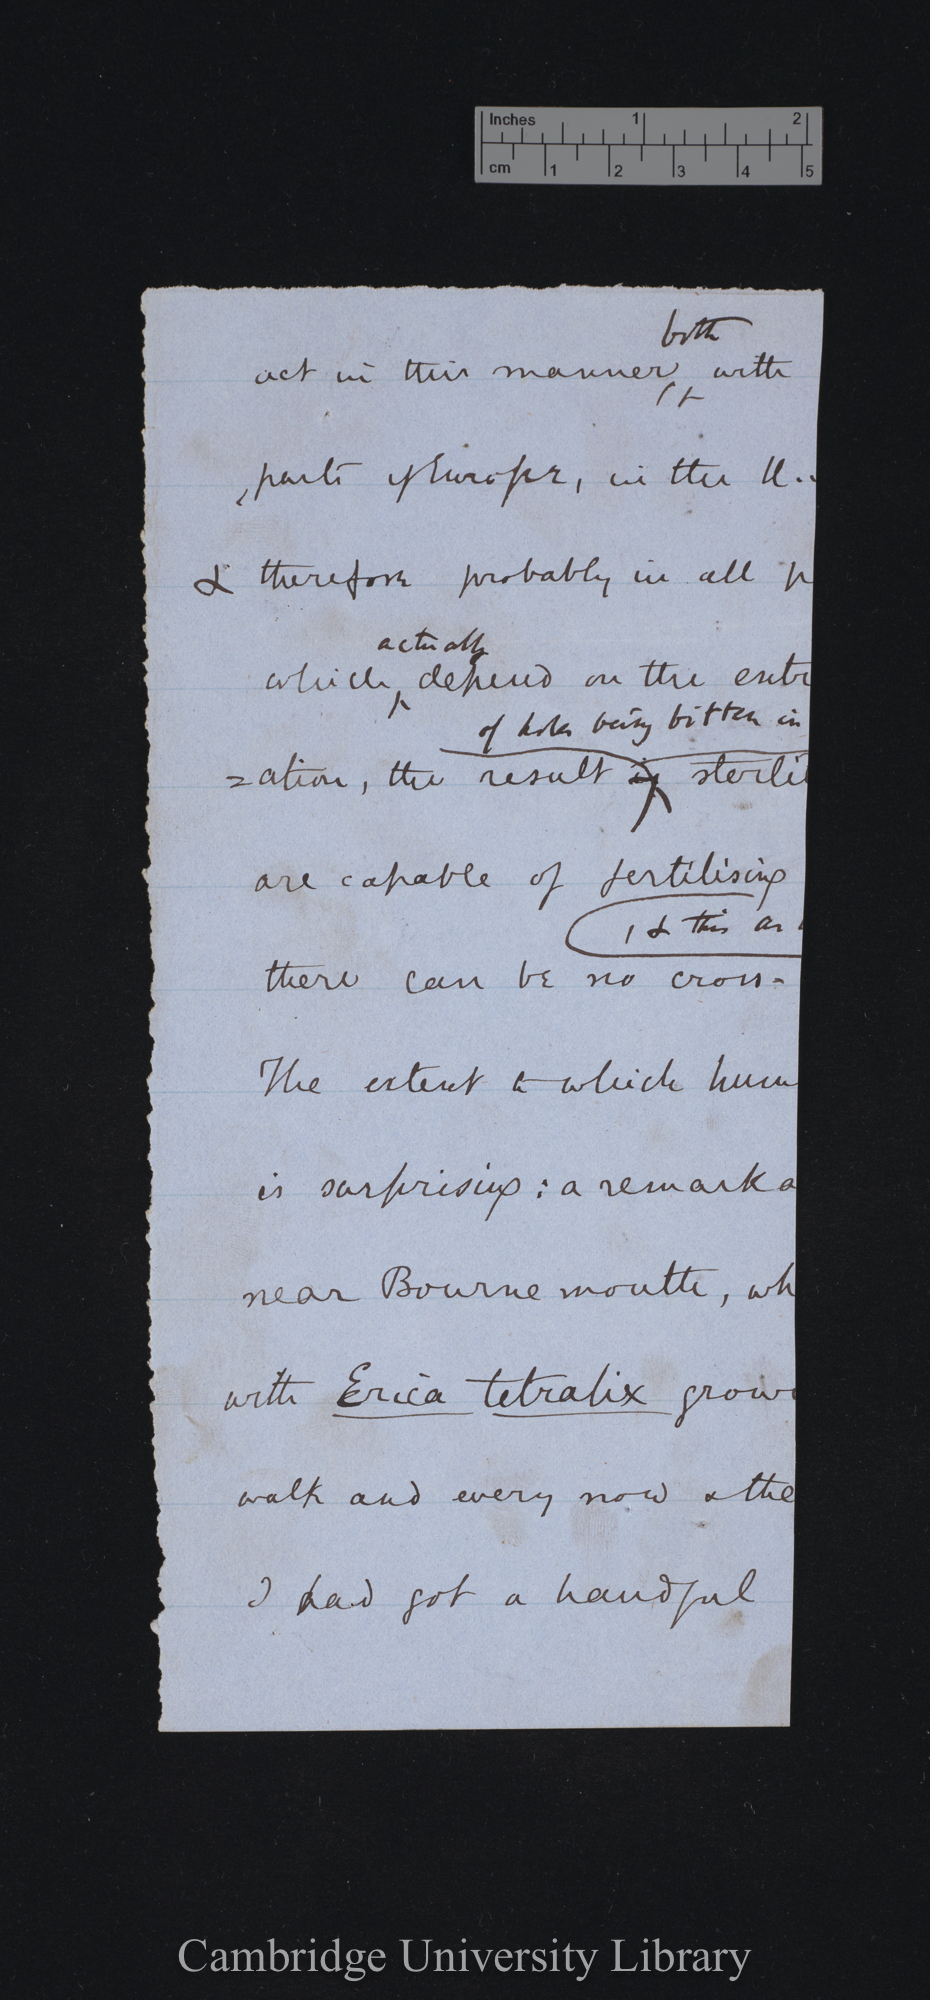 Inches 1 2
cm 1 2 3 4 5
both
act in this manner, with
parts of Europe, in the U..
& therefore probably in all p
actually
which depend on the ento
of holes being bitten in
=ation, the result is sterili
are capable of fertilising
, & this as
there can be no cross-
The extent to which hum
is surprising: a remarka
near Bournemouth, wh
with Erica tetralix grow
walk and every now & the
I had got a handful
Cambridge University Library